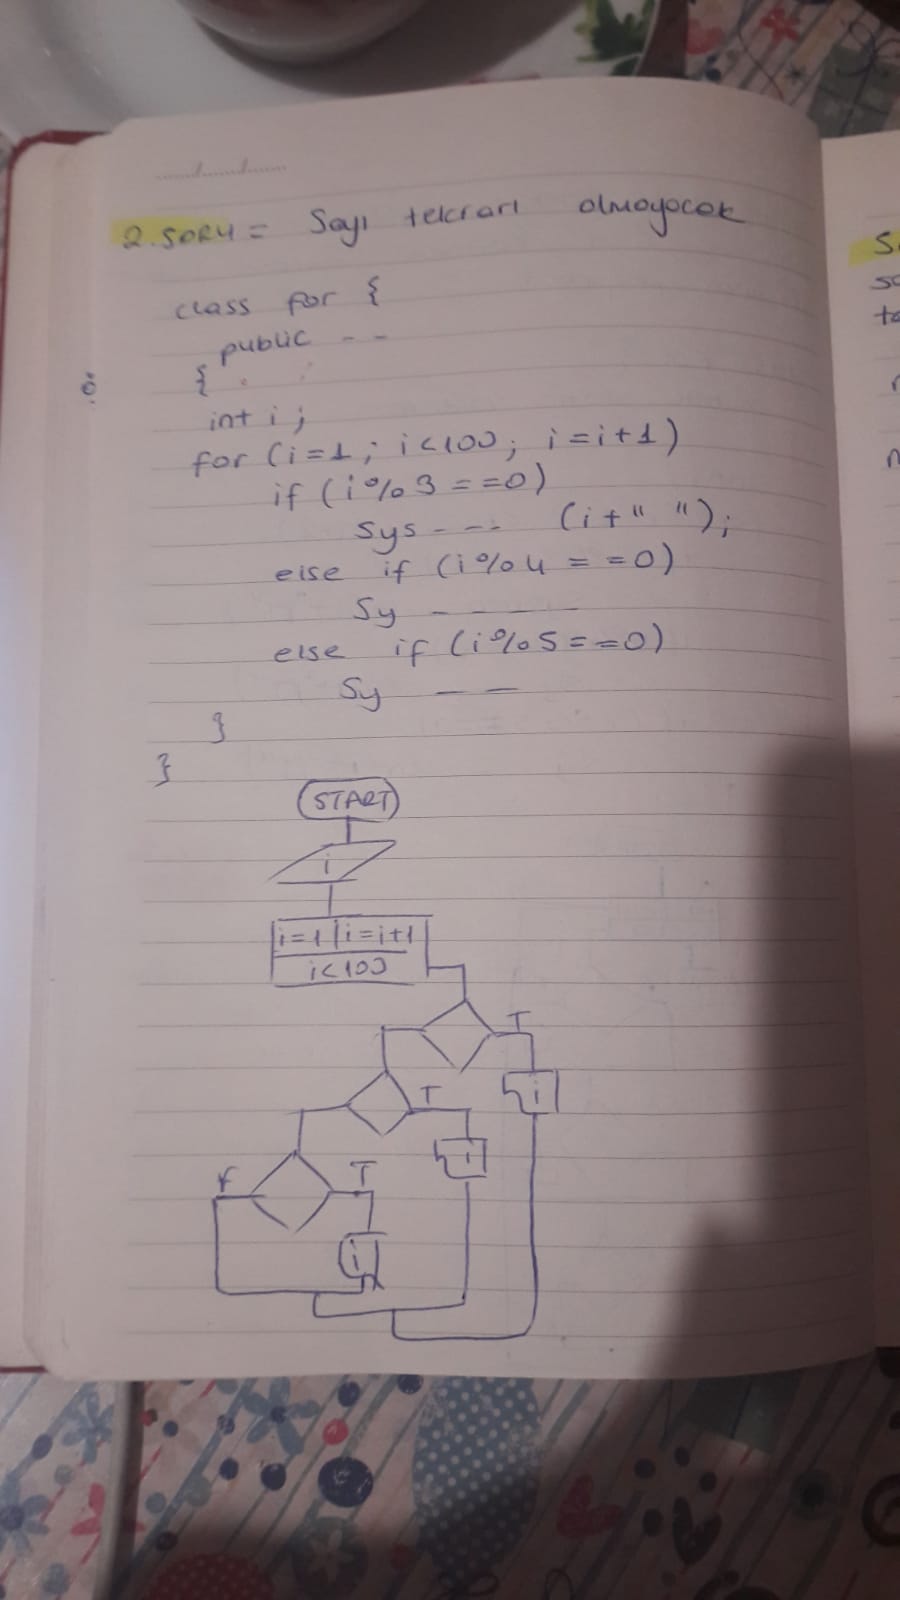 2.SORU = Sayı tekrarı olmayacak
class for {
public - -
{
int i;
for (i=1; i<100; i=i+1)
if (i%3==0)
Sys - - - (i+" ");
else if (i%4==0)
Sy - - - -
else if (i%5==0)
Sy - -
}
}
START
i
i=1 | i=i+1
i<100
T
T
i
F
T
i
i